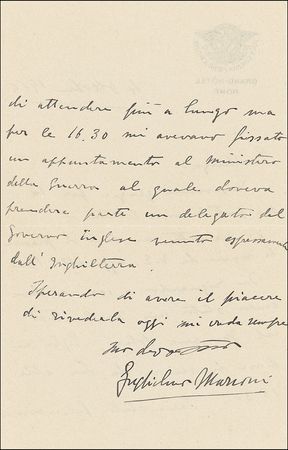 di attendere più a lungo ma
per le 16.30 mi avevano fissato
un appuntamento al Ministero
della Guerra al quale doveva
prendere parte un delegato del
Governo inglese venuto espressamente
dall'Inghilterra.
Sperando di avere il piacere
di rivederla oggi mi creda sempre
suo devotissimo
Guglielmo Marconi